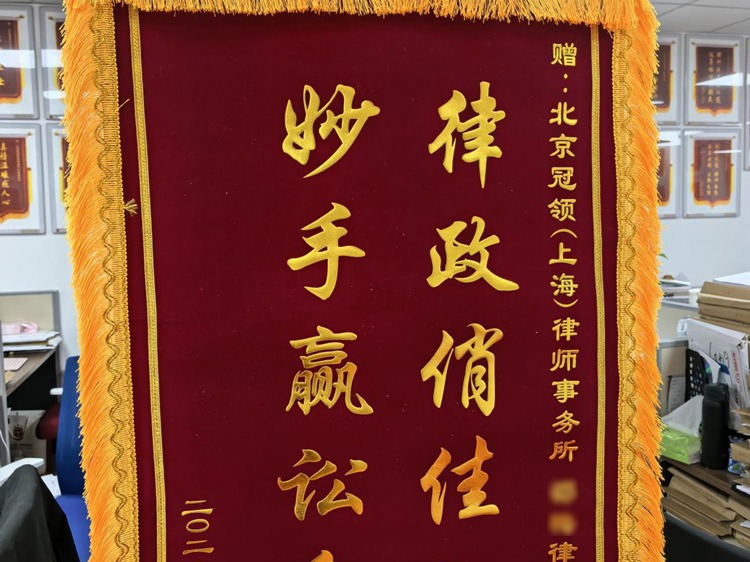 赠：北京冠领（上海）律师事务所 律
律政俏佳
妙手赢讼
二〇二